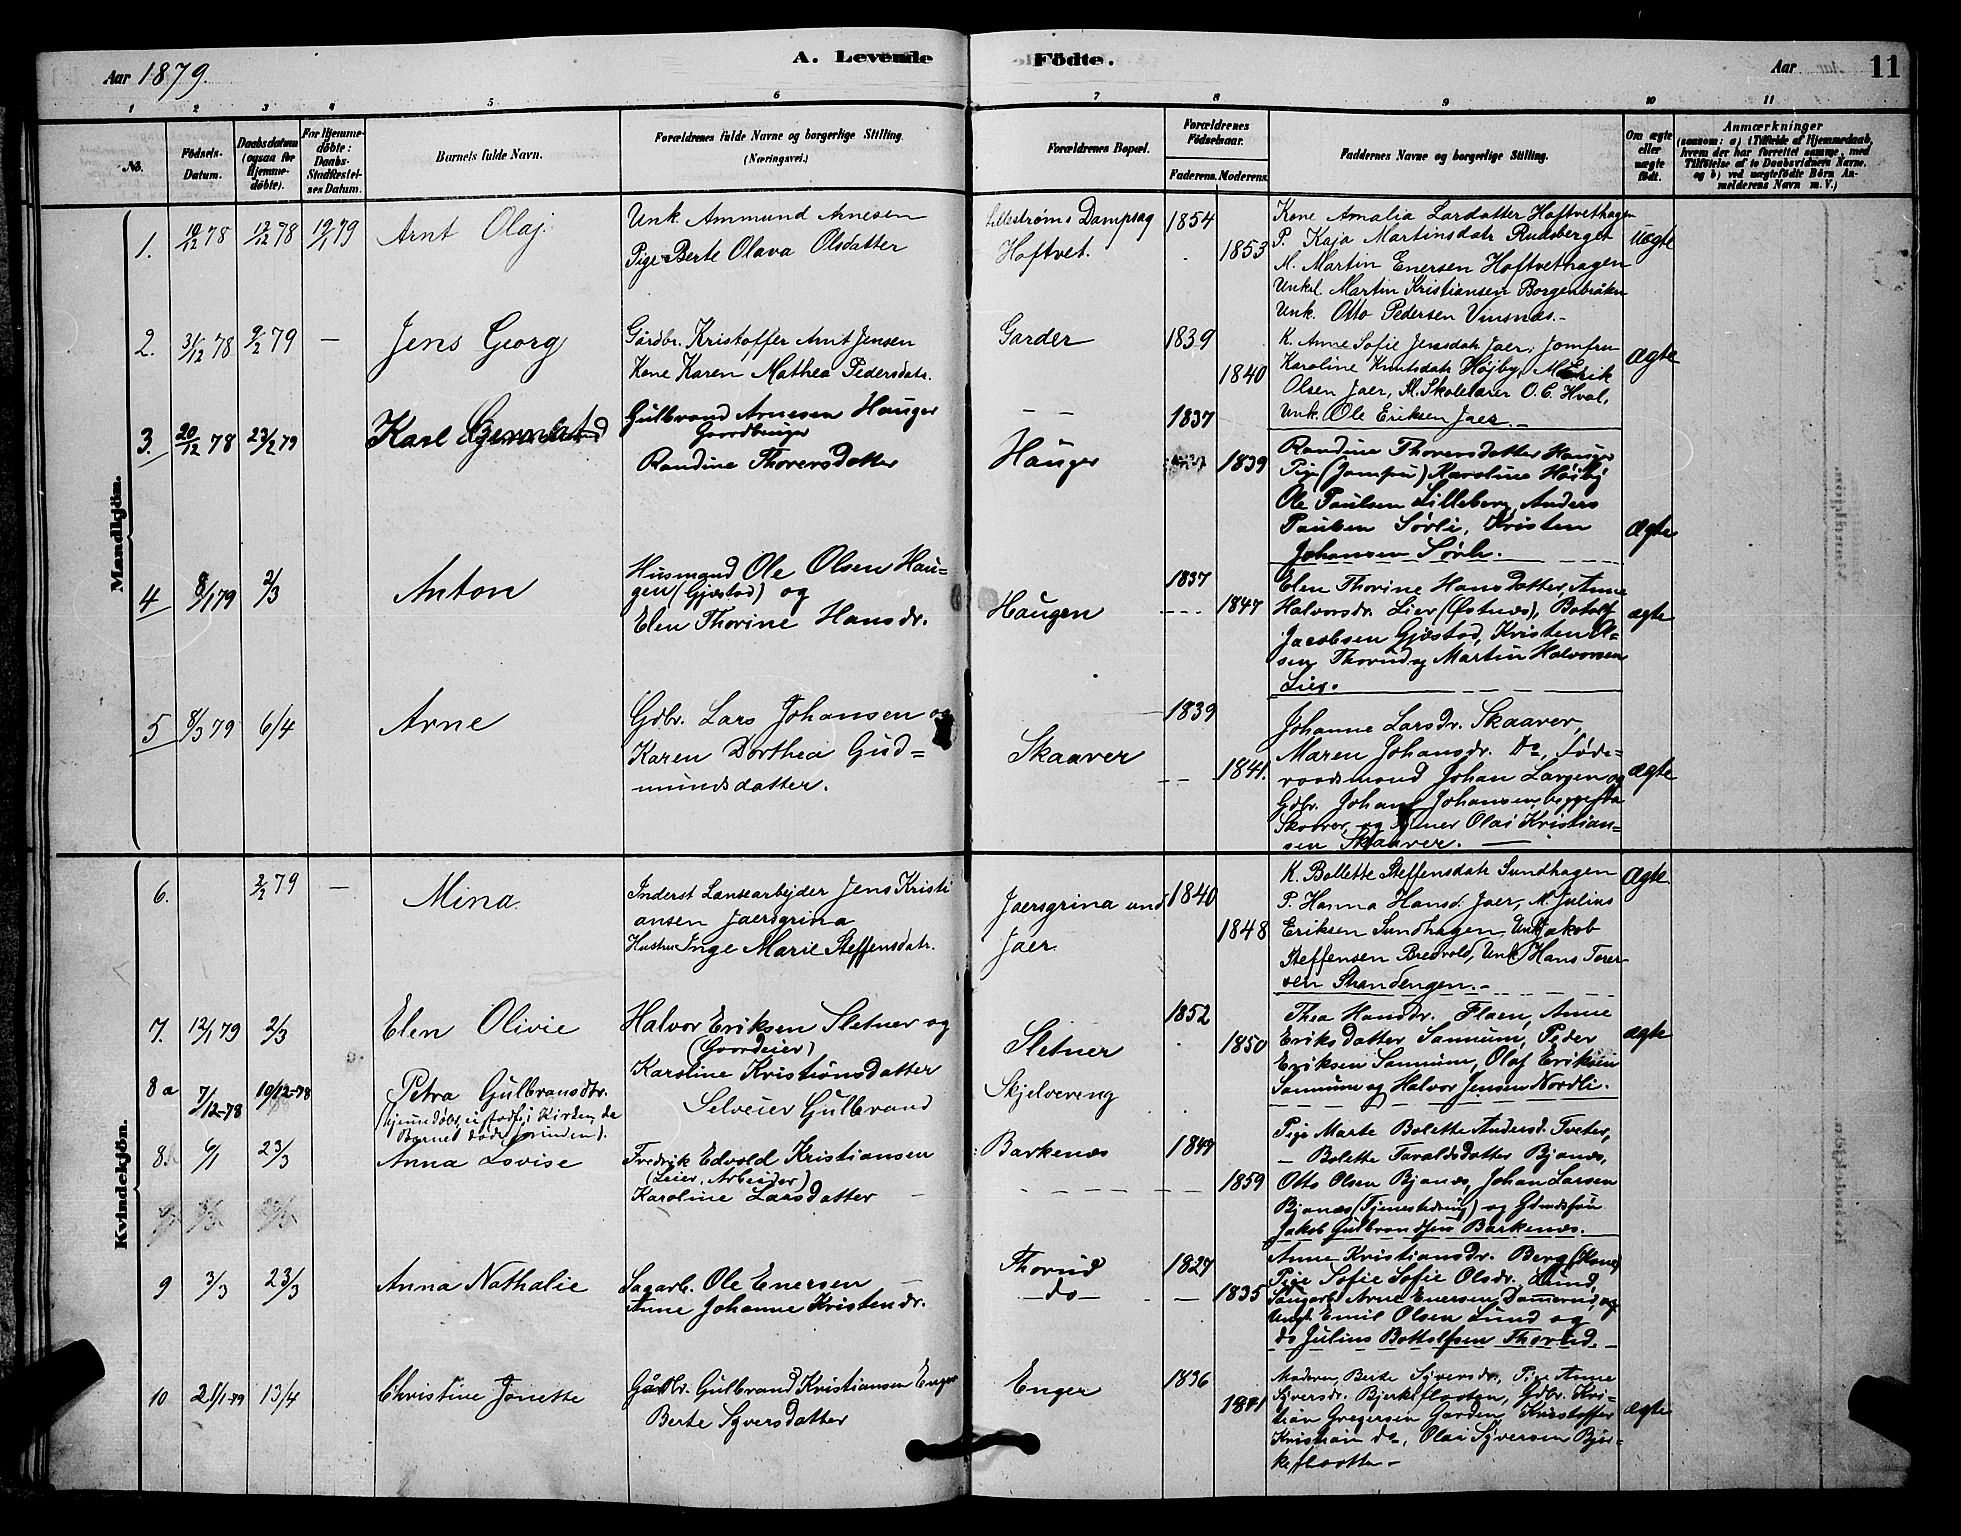 Aar 1879.
A. Levende
Födte.
Aar
11
1 2 3 4 5 6 7 8 9 10 11
No.
Födsels-Datum.
Daabsdatum (ogsaa for Hjemmedöbte).
For Hjemmedöbte: Daabs-Stadfæstelses Datum.
Barnets fulde Navn.
Forældrenes fulde Navne og borgerlige Stilling. (Næringsvei.)
Forældrenes Bopæl.
Forældrenes Födselsaar.
Faderens. Moderens.
Faddernes Navne og borgerlige Stilling.
Om ægte eller uægte födt.
Anmærkninger
(saasom: a) i Tilfælde af Hjemmedaab, hvem der har forrettet samme, med Tilföielse af to Daabsvidners Navne, og b) ved uægtefödte Börn Anmelderens Navn m. V.)
Mandkjön.
1. 10/12 78 12/12 78 19/1 79 Arnt Olaj
Unk. Ammund Arnesen
Pige Berte Olava Olsdatter
Lillestrøms Dampsag
Hoftvet.
1854
1853
Kone Amalia Larsdatter Hoftvethagen
P. Kaja Martinsdatr Rudsberget
M. Martin Enersen Hoftvethagen
Unkl Martin Kristiansen Borgenbråten
Unk. Otto Pedersen Vinsnæs.-
uægte
2. 31/12 78 9/2 79 - Jens Georg
Gårdbr. Kristoffer Arnt Jensen
Kone Karen Mathea Pedersdatr.
Garder
1839
1840
K. Anne Sofie Jensdatr Jaer, Jomfru
Karoline Knutsdatr Højby, M. Erik
Olsen Jaer, M. Skolelærer O. C. Hval,
Unk. Ole Eriksen Jaer.-
Ægte
3. 20/12 78 23/2 79 Karl
Gulbrand Arnesen Hauger
Gaardbruger
Randine Thoversdatter
- -
Hauger
1837
1839
Randine Thoversdatter Hauger
Pige (Jomfru) Karoline Høiby
Ole Paulsen Lilleberg, Anders
Paulsen Sørli, Kristen
Johansen Sørli.
Ægte
4 8/1 79 2/3 Anton
Husmand Ole Olsen Hau=
gen (Gjæstad) og
Elen Thorine Hansdr.
Haugen
1837
1847
Elen Thorine Hansdatter, Anne
Halvorsdr. Lier (Østnæs), Botolf
Jacobsen Gjæstad, Kristen Ol-
sen Thorud og Martin Halvorsen
Lier.
ægte
5 8/3 79 6/4 Arne
Gdbr. Lars Johansen og
Karen Dorthea Gud=
mundsdatter.
Skaarer
1839
1841.
Johanne Larsdr. Skaarer,
Maren Johansdr. Do, Føde=
raadsmand Johan Larsen og
Gdbr. Johan Johansen begge fra
Skaarer, og Olai Kristian-
sen Skaarer.
Ægte
Kvindekjön.
6. 2/2 79 - Mina
Inderst Lansearbejder Jens Kristi
ansen Jaersgrina
Hustru Inge Marie Steffensdatr.
Jaersgrina und
Jaer
1840
1848
K. Bollette Steffensdatr Sundhagen
P. Hanna Hansd. Jaer, M. Julius
Eriksen Sundhagen, Unk. Jakob
Steffensen Bredvold, Unk Hans Torer
sen Strandengen.-
Ægte
7. 12/1 79 2/3 Elen Olivie
Halvor Eriksen Sletner og
(Gaardeier)
Karoline Kristiansdatter
Sletner
1852
1850
Thea Hansdr. Flaen, Anne
Eriksdatter Sannum, Peder
Eriksen Sannum, Olaf Eriksen
Sannum og Halvor Jensen Nordli.
ægte
8 a 7/12-78 10/12-78 Petra Gulbransdtr.
(hjemmedøbt, ei i Kirken, da
Barnet døde forinden).
Selveier Gulbrand
Skjelvereng
8. 6/1 23/3 Anna Lovise
Fredrik Edvold Kristiansen
(Leier, Arbeider)
Karoline Larsdatter
Barkenæs
1849
1859
Pige Marte Bolette Andersd. Tveter,
- Bolette Taraldsdatter Bjanæs,
Otto Olsen Bjanæs, Johan Larsen
Bjanæs (Tjenestedreng) og
Jakob Gulbrandsen Barkenæs.
9 3/3 23/3 Anna Nathalie
Sagarb. Ole Enersen
Anne Johanne Kristendr.
Thorud
-do-
1827
1835
Anne Kristiansdr. Berg (Kone)
Pige Sofie Sofie Olsdr. Lund,
Saugarb. Arne Enersen Dammerud, og
Ungk. Emil Olsen Lund og
do Julius Bottolfsen Thorud.-
10 25/1-79 13/4 Christine Jonette
Gårdbr. Gulbrand Kristiansen Enger
Berte Syversdatter
Enger
1836
1841
Moderen, Berte Syversdr, Pige Anne
Syversdr. Bjerkefloten, Gdbr. Kri-
stian Gregersen Garden, Kristoffer
Kristian do, Olai Syversen Bjer-
kefloten -
ægte